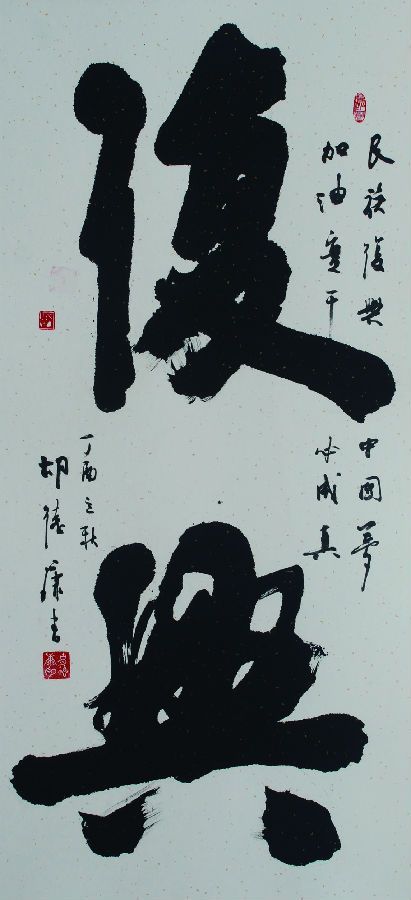 民族復興 中國夢
加油實干 必成真
復興
丁酉之秋
胡德康書